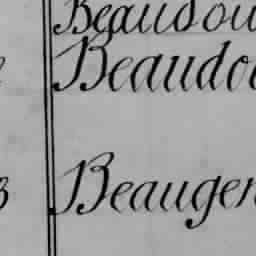 Beaudou
Beaudou
3 Beaugen